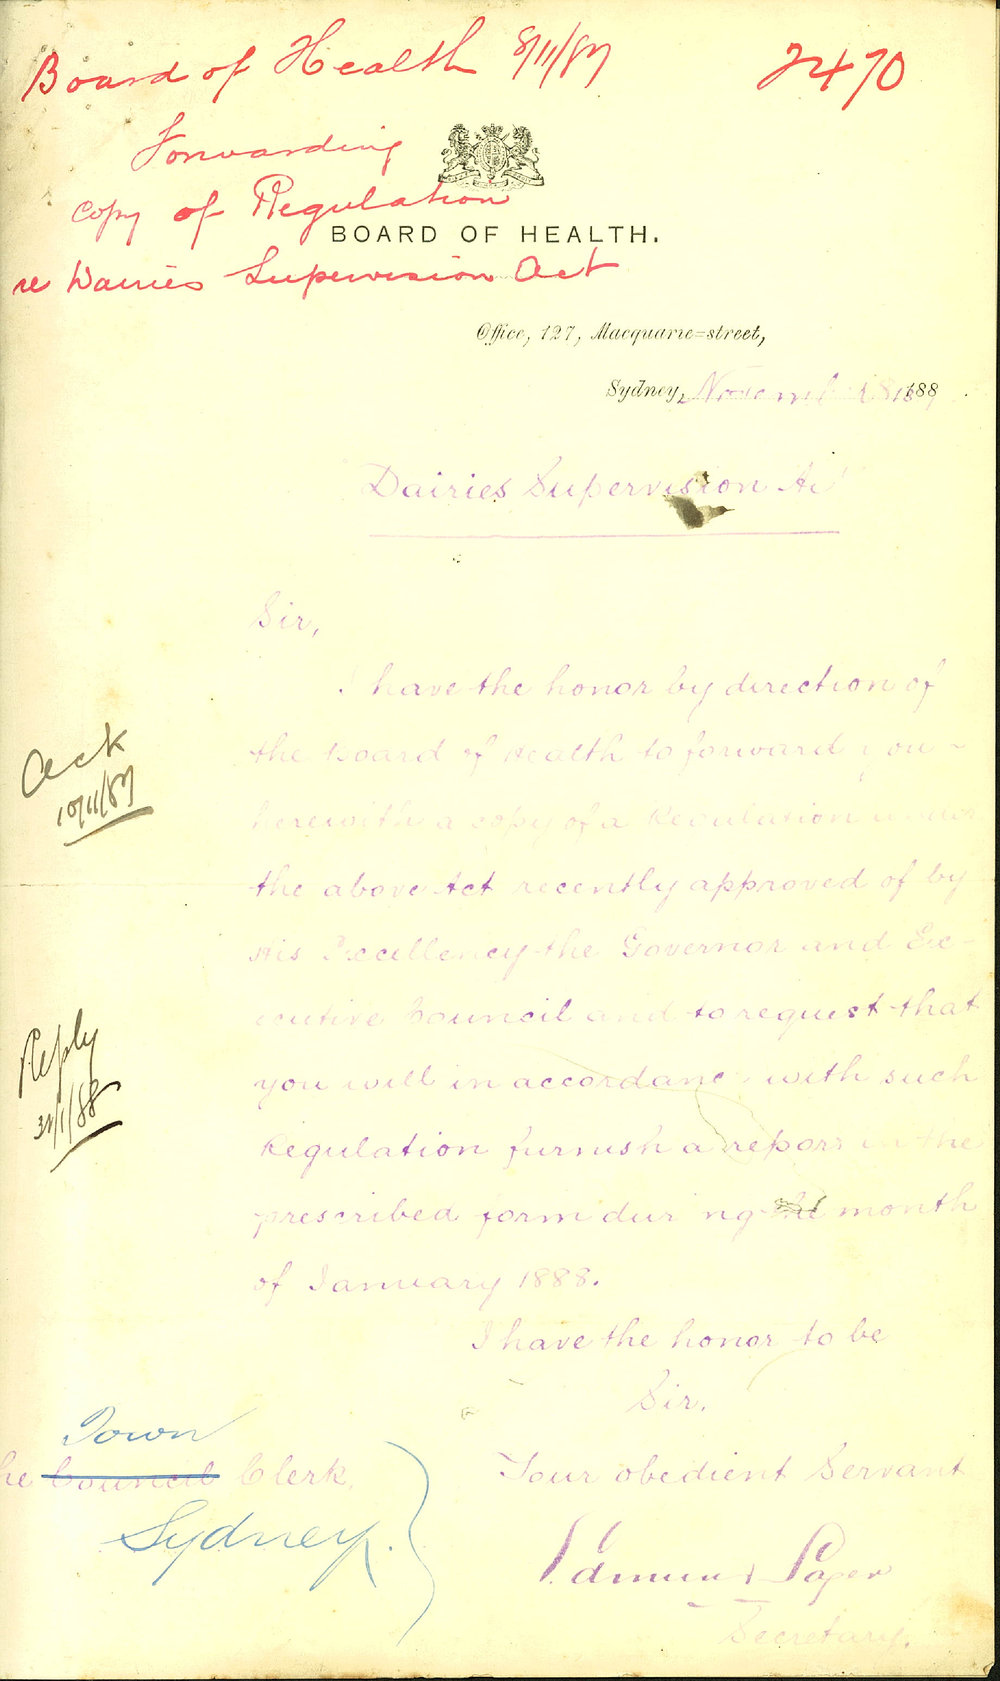 Board of Health 8/11/87
2470
Forwarding
copy of Regulation
BOARD OF HEALTH.
re Dairies Supervision Act
Office, 127, Macquarie=street,
Sydney, November 8 188
Dairies Supervision Act
Sir,
I have the honor by direction of
the Board of Health to forward you
herewith a copy of a Regulation under
the above Act recently approved of by
His Excellency the Governor and Ex-
ecutive Council and to request that
you will in accordance with such
Regulation furnish a report in the
prescribed form during the month
of January 1888.
I have the honor to be
Sir.
Your obedient Servant
Edmund Sager
Secretary.
Town
he Council Clerk
Sydney.
Ack
10/11/87
Reply
31/1/88